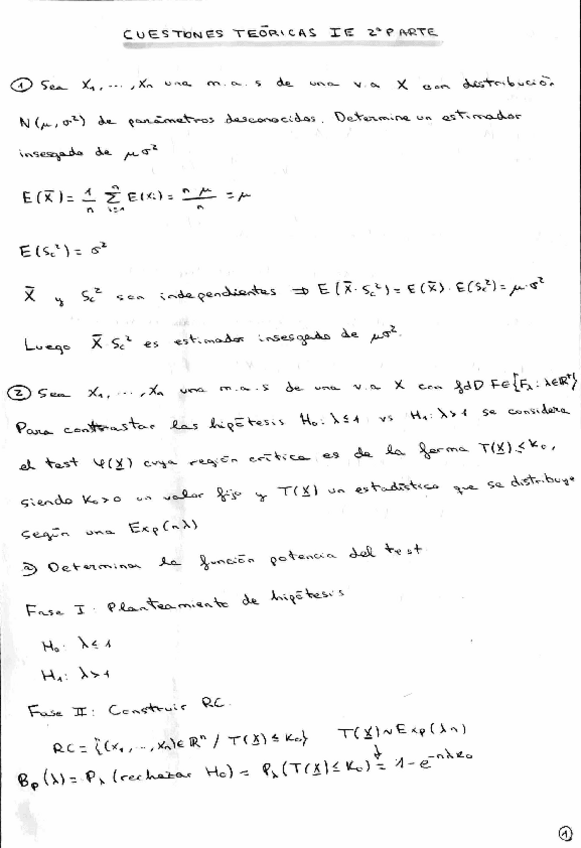 CUESTIONES TEÓRICAS IE 2ª PARTE
① Sea X₁, ..., Xn una m.a.s de una v.a X con distribución
N(μ, σ²) de parámetros desconocidos. Determine un estimador
insesgado de μσ²
E(X̄) = 1/n Σᵢ₌₁ⁿ E(Xᵢ) = nμ/n = μ
E(Sc²) = σ²
X̄ y Sc² son independientes ⇒ E(X̄·Sc²) = E(X̄)·E(Sc²) = μ·σ²
Luego X̄ Sc² es estimador insesgado de μσ².
② Sea X₁, ..., Xn una m.a.s de una v.a X con fdD F∈{Fλ: λ∈ℝ⁺}
Para contrastar las hipótesis H₀: λ≤1 vs H₁: λ>1 se considera
el test φ(X) cuya región crítica es de la forma T(X) ≤ K₀,
siendo K₀>0 un valor fijo y T(X) un estadístico que se distribuye
según una Exp(nλ)
a) Determinar la función potencia del test
Fase I: Planteamiento de hipótesis
H₀: λ≤1
H₁: λ>1
Fase II: Construir RC.
RC = {(x₁, ..., xn)∈ℝⁿ / T(X) ≤ K₀} T(X) ~ Exp(λn)
Bp(λ) = Pλ(rechazar H₀) = Pλ(T(X) ≤ K₀) = 1 - e^(-nλK₀)
①